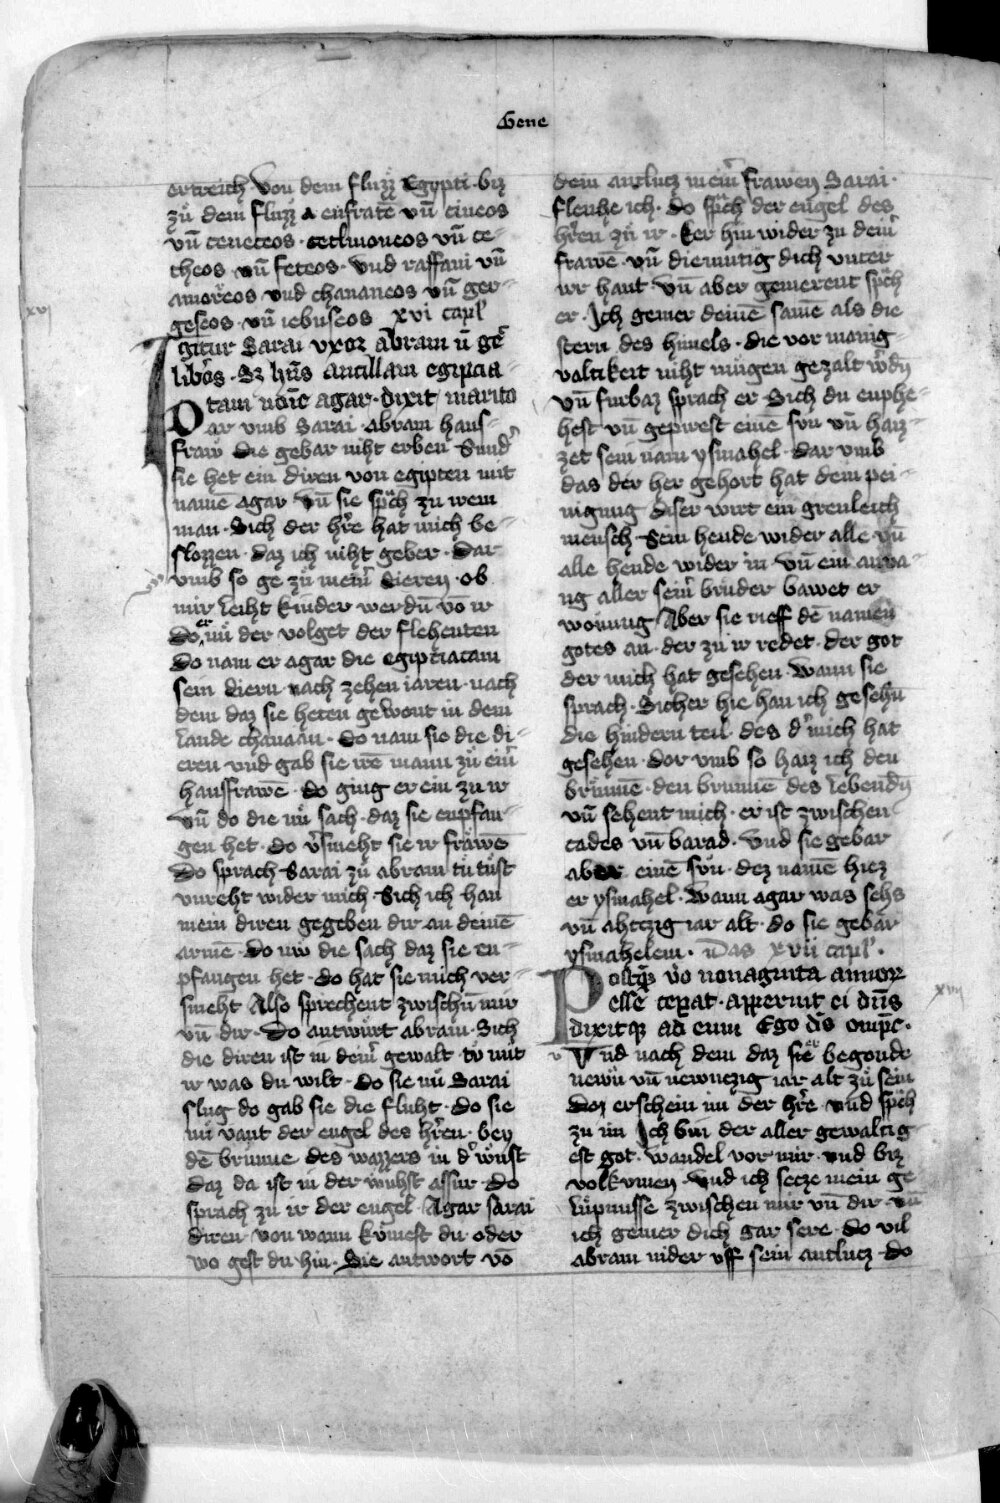 Gene
ertreich · von dem fluzz Egypti · biz
zu dem fluzz eufrate vn̄ cineos
vn̄ ceneceos · cethmoneos vn̄ ce-
theos vn̄ feteos · vnd raffani vn̄
amoreos vnd chananeos vn̄ ger-
geseos · vn̄ iebuseos xvi capl'
xvj
Igitur Sarai vxor abram n̄ ge᷎
libe᷎os · Sz hn̄s ancillam egipcia-
tam noīe agar · dixit marito
Dar vmb Sarai · abram haus-
fraw die gebar niht erben Sund᷎
sie het ein diren von egipten mit
namē agar vn̄ sie sp᷎ch zu irem
man · Sich der h᷎re hat mich be-
slozzen · daz ich niht geber · Dar
vmb so ge zu mein᷎ dieren · ob
mir leiht kinder werdn̄ vō ir
Do er nu der volget der flehenten
Do nam er agar die egipciacam
sein diern nach zehen iaren · nach
dem daz sie heten gewont in dem
lande chanaan · do nam sie die di-
eren vnd gab sie irē mann zu ein᷎
hausfrawē · do ging er ein zu ir
vn̄ do die nu sach · daz sie enpfan-
gen het · do v᷎smeht sie ir frawē
Do sprach Sarai zu abram tu tust
vnreht wider mich · Sich ich han
mein diren gegeben dir an deinē
armē · do nv die sach daz sie en-
pfangen het · do hat sie mich ver-
smeht Also sprechent zwischn̄ mir
vn̄ dir · Do antwurt abram · Sich
die diren ist in dein᷎ gewalt · tv mit
ir was du wilt · do sie nu Sarai
slug do gab sie die fluht · do sie
nu vant der engel des h᷎ren · bey
dē brunne des wazzers in d᷎ wust
daz da ist in der wuhst assur · do
sprach zu ir der engel · Agar sarai
diren · von wann kumest du · oder
wo gest du hin · Sie antwort vō
dem antlucz mein᷎ frawen Sarai ·
fleuhe ich · do sp᷎ch der engel des
h᷎ren zu ir · ker hin wider zu dein᷎
frawē · vn̄ diemutig dich vnter
ir hant vn̄ aber gemerent sp᷎ch
er · Ich gemer deinē samē als die
stern des himels · die vor manig-
valtikeit niht mugen gezalt w᷎dn̄
vn̄ furbaz sprach er Sich du enphe-
hest vn̄ gepirest einē svn vn̄ haiz-
zet sein nam ysmahel · dar vmb
das der her gehort hat dein pei-
nigung diser wirt ein greuleich
mensch · Sein hende wider alle vn̄
alle hende wider in vn̄ ein anva-
ng aller sein᷎ bruder bawet er
wonung · Aber sie rieff dē namen
gotes an · der zu ir redet · der got
der mich hat gesehen · wann sie
sprach · Sicher hie han ich gesehn̄
die hindern teil des d᷎ mich hat
gesehen · dor vmb so haiz ich den
brunnē · den brunnē des lebendn̄
vn̄ sehent mich · er ist zwischen
cades vn̄ barad · vnd sie gebar
aber einē svn · dez namē hiez
er ysmahel · wann agar was sehs
vn̄ ahtzig iar alt · do sie gebar
ysmahelem · Das xvii capl' ·
Postq᷎ v᷎o nonaginta annor
esse cepat · apperuit ei dn̄s
xvij
dixitq᷎ ad eum Ego d᷎s omp̄c ·
Vnd nach dem daz er begonde
newn vn̄ newnczig iar alt zu sein
Doz erschein im der h᷎re vnd sp᷎ch
zu im Ich bin der aller gewaltig-
est got · wandel vor mir · vnd biz
volkumen · vnd ich secze mein ge-
lupnusse zwischen mir vn̄ dir · vn̄
ich gemer dich gar sere · do vil
abram nider vff sein antlucz · do